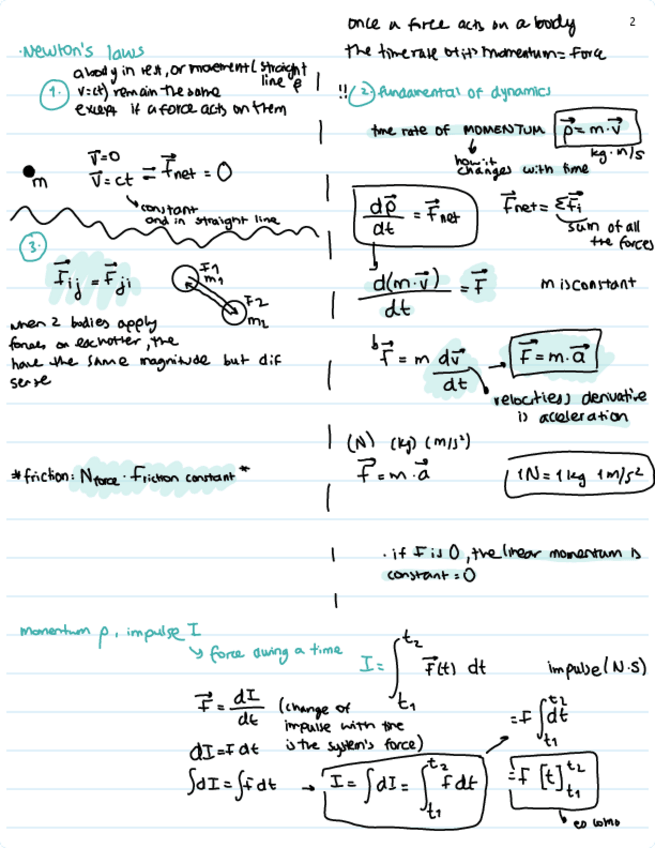 once a force acts on a body
2
the time rate of its momentum = force
·Newton's laws
a body in rest, or movement (straight
line &
1.
v=ct) remain the same
except if a force acts on them
v⃗=0
v⃗=ct = F⃗net = 0
m
constant
and in straight line
3.
F⃗ij = F⃗ji
F1
m1
F2
m2
when 2 bodies apply
forces on eachother, the
have the same magnitude but dif
sense
*friction: Nforce · Friction constant*
!! 2. fundamental of dynamics
time rate of MOMENTUM p⃗=m·v⃗
kg·m/s
how it
changes with time
dp⃗/dt = F⃗net
F⃗net = ΣF⃗i
sum of all
the forces
d(m·v⃗)/dt = F⃗
m is constant
F⃗ = m dv⃗/dt → F⃗=m·a⃗
velocities derivative
is acceleration
(N) (kg) (m/s²)
F⃗=m·a⃗
1N=1kg 1m/s²
· if F is 0, the linear momentum is
constant = 0
momentum p, impulse I
force during a time
I = ∫t1t2 F⃗(t) dt
impulse (N·S)
F⃗ = dI/dt (change of
impulse with time
is the system's force)
dI=F dt
∫dI=∫F dt → I = ∫dI = ∫t1t2 F dt
=F ∫t1t2 dt
=F [t]t1t2
eo como